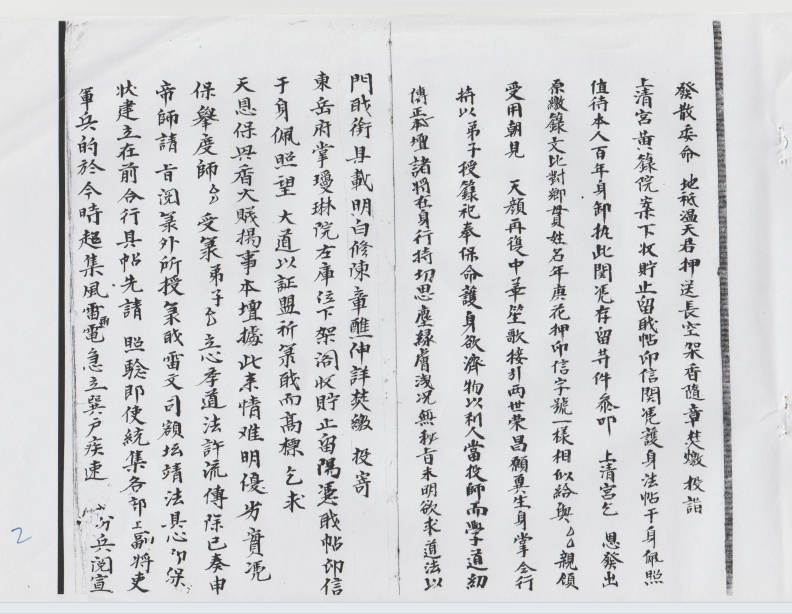 發散委命 地祇溫天君押送長空架香隨章焚燬 投詣
上清宮黃籙院案下收貯止留戝帖印信関憑護身法帖于身佩照
值待本人百年身卸执此関憑存留井件叅叩 上清宮乞 恩發出
原繳籙文比對鄉貫姓名年庚花押印信字號一樣相似給與厶厶親領
受用朝見 天顏再復中華笙歌接引兩世荣昌願真生身掌仝行
持以弟子授籙祀奉保命護身欲濟物以利人當投師而學道紉
傳正本壇諸將在身行持切思塵緣膚淺况無秘旨未明欲求道法以
門戝銜具載明白修陳章醮伸詳焚繳 投寄
東岳府掌瓊琳院左庫位下架阁收貯止留陽憑戝帖印信
于身佩照望 大道以証盟祈箓戝而高標乞求
天恩保舉香火賤揚事本壇據此来情难明優劣實憑
保舉度師厶 受箓弟子厶立心孝道法許流傳除已奏申
帝師請旨閱箓外所授箓戝雷文司額坛靖法具心印保
状建立在前合行具帖先請 照驗即使統集各部工副將吏
軍兵的於今時超集風雷雨電急立巽户疾速 分兵関宣
2